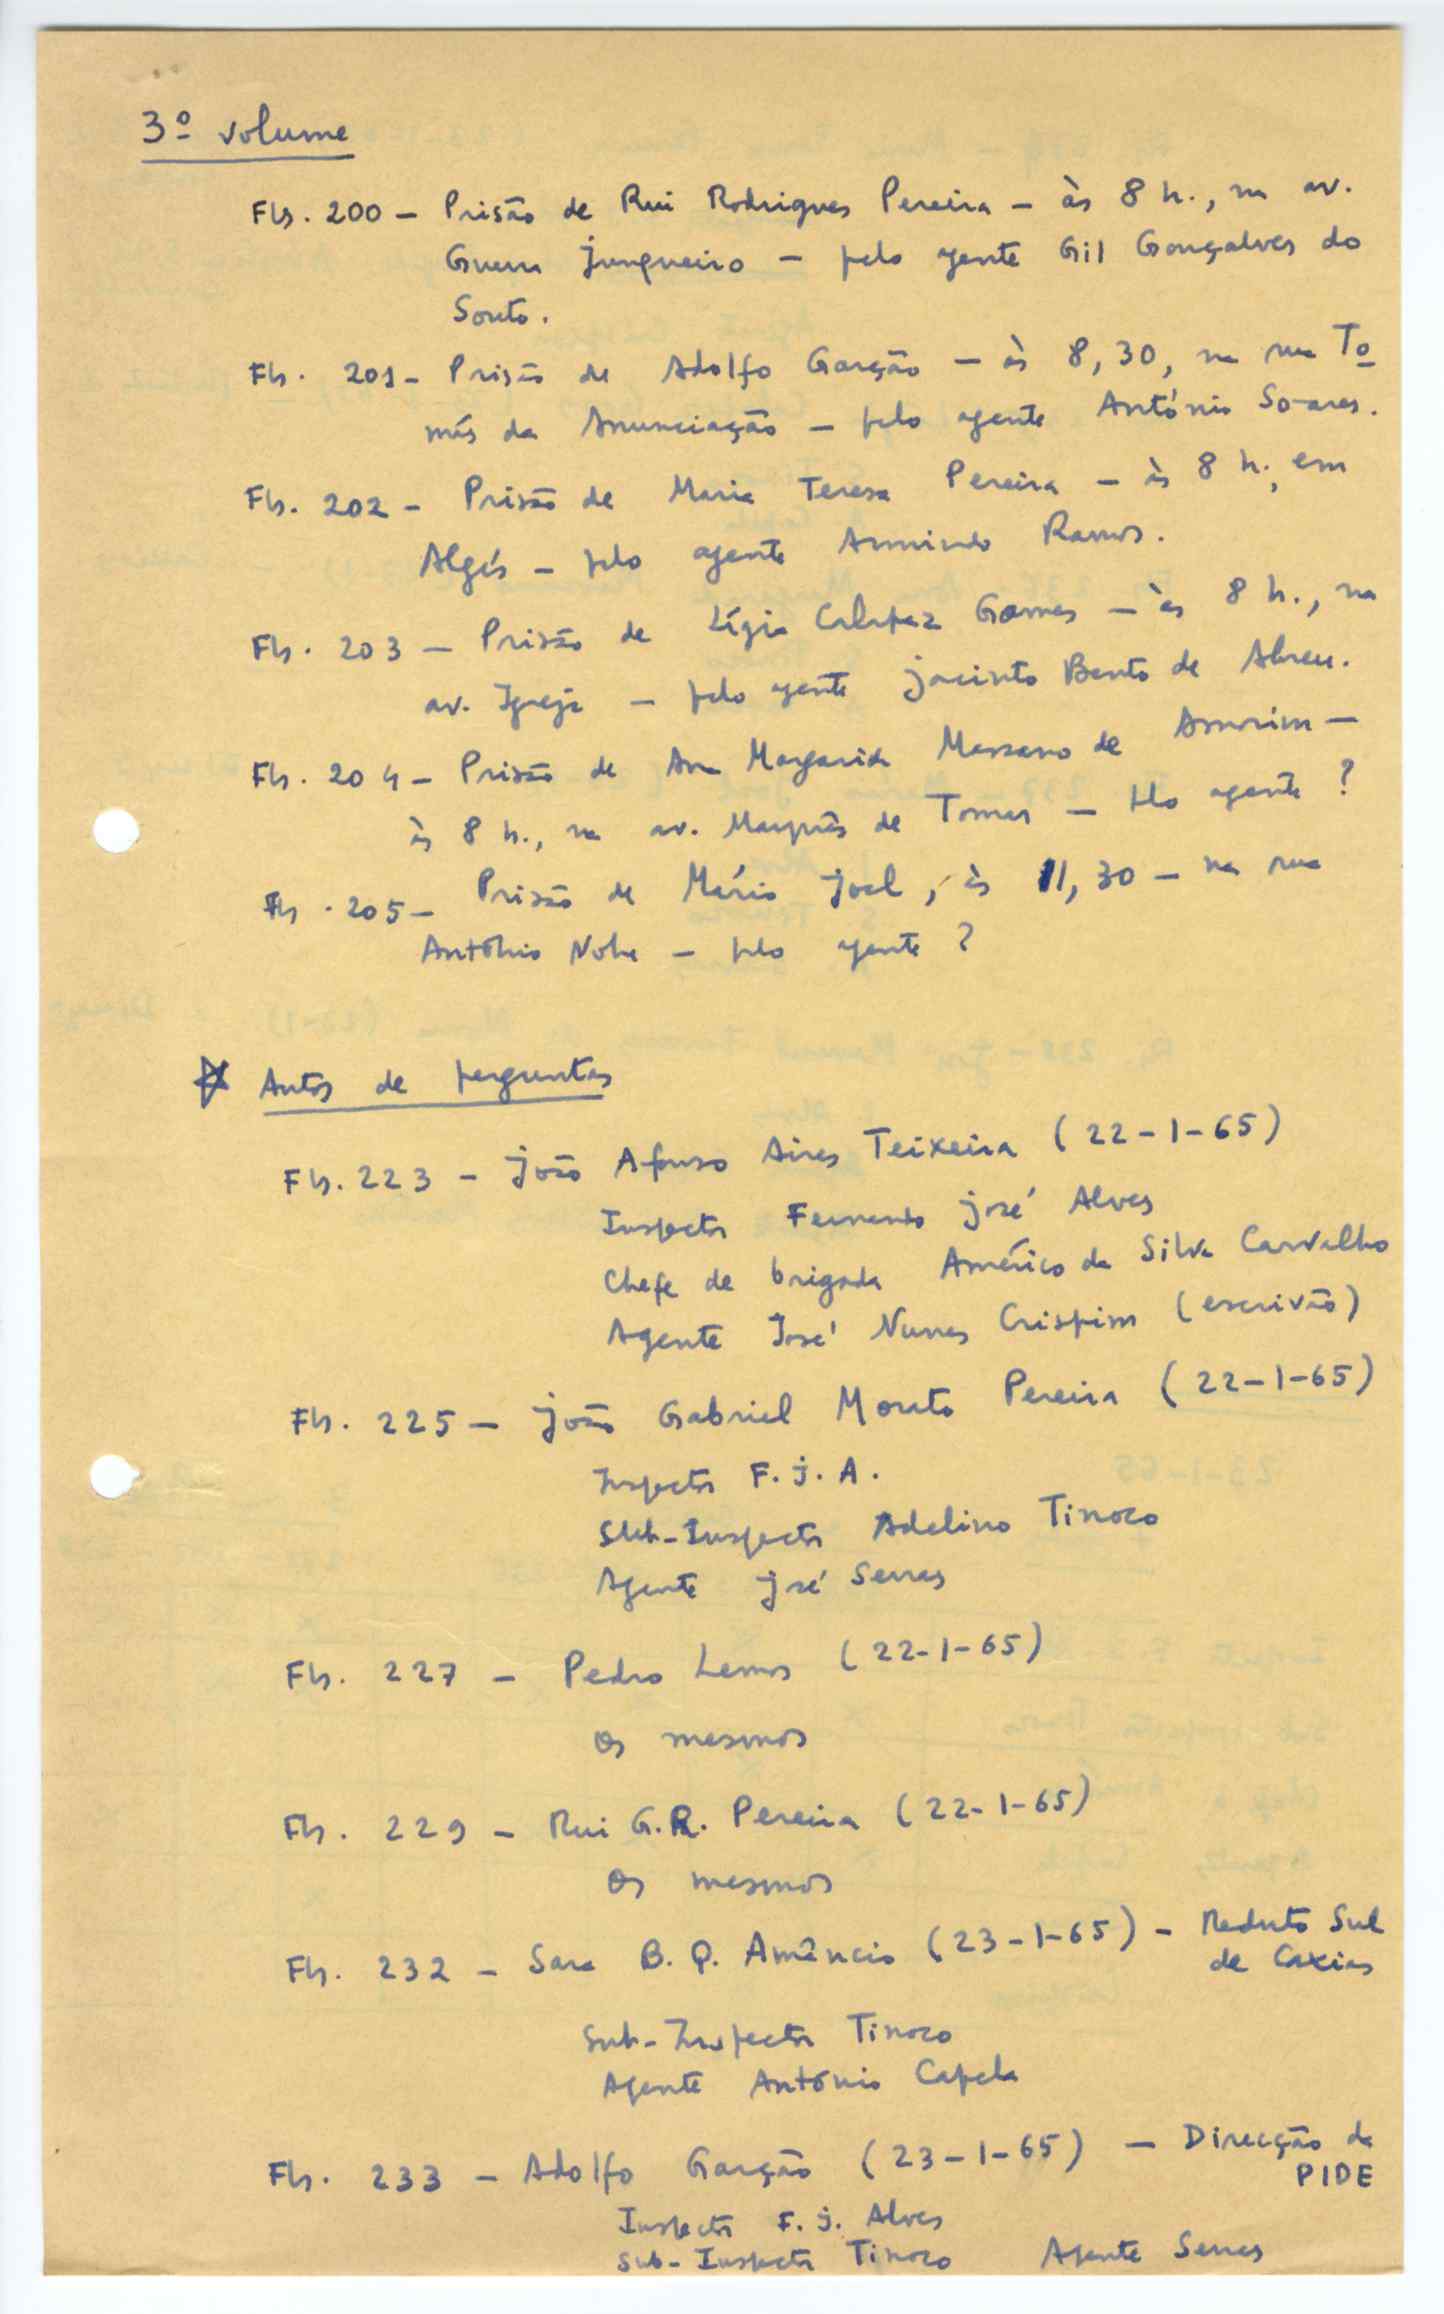 3º volume
Fls. 200 – Prisão de Rui Rodrigues Pereira – às 8 h., na av.
Guerra Junqueiro – pelo agente Gil Gonçalves do
Souto.
Fls. 201 – Prisão de Adolfo Garção – às 8,30, na rua To
más da Anunciação – pelo agente António Soares.
Fls. 202 – Prisão de Maria Teresa Pereira – às 8 h., em
Algés – pelo agente Armindo Ramos.
Fls. 203 – Prisão de Lígia Calapez Gomes – às 8 h., na
av. Igreja – pelo agente Jacinto Bento de Abreu.
Fls. 204 – Prisão de Ana Margarida Marzano de Amorim –
às 8 h., na av. Marquês de Tomar – pelo agente ?
Fls. 205 – Prisão de Mário Joel, às 11,30 – na rua
António Nobre – pelo agente ?
Autos de perguntas
Fls. 223 – João Afonso Aires Teixeira (22-1-65)
Inspector Fernando José Alves
Chefe de brigada Américo da Silva Carvalho
Agente José Nunes Crispim (escrivão)
Fls. 225 – João Gabriel Morato Pereira (22-1-65)
Inspector F. J. A.
Sub-Inspector Adelino Tinoco
Agente José Serras
Fls. 227 – Pedro Lemos (22-1-65)
Os mesmos
Fls. 229 – Rui G.R. Pereira (22-1-65)
Os mesmos
Fls. 232 – Sara B. Q. Amâncio (23-1-65) – Reduto Sul
de Caxias
Sub-Inspector Tinoco
Agente António Capela
Fls. 233 – Adolfo Garção (23-1-65) – Direcção da
PIDE
Inspector F. J. Alves
Sub-Inspector Tinoco Agente Serras